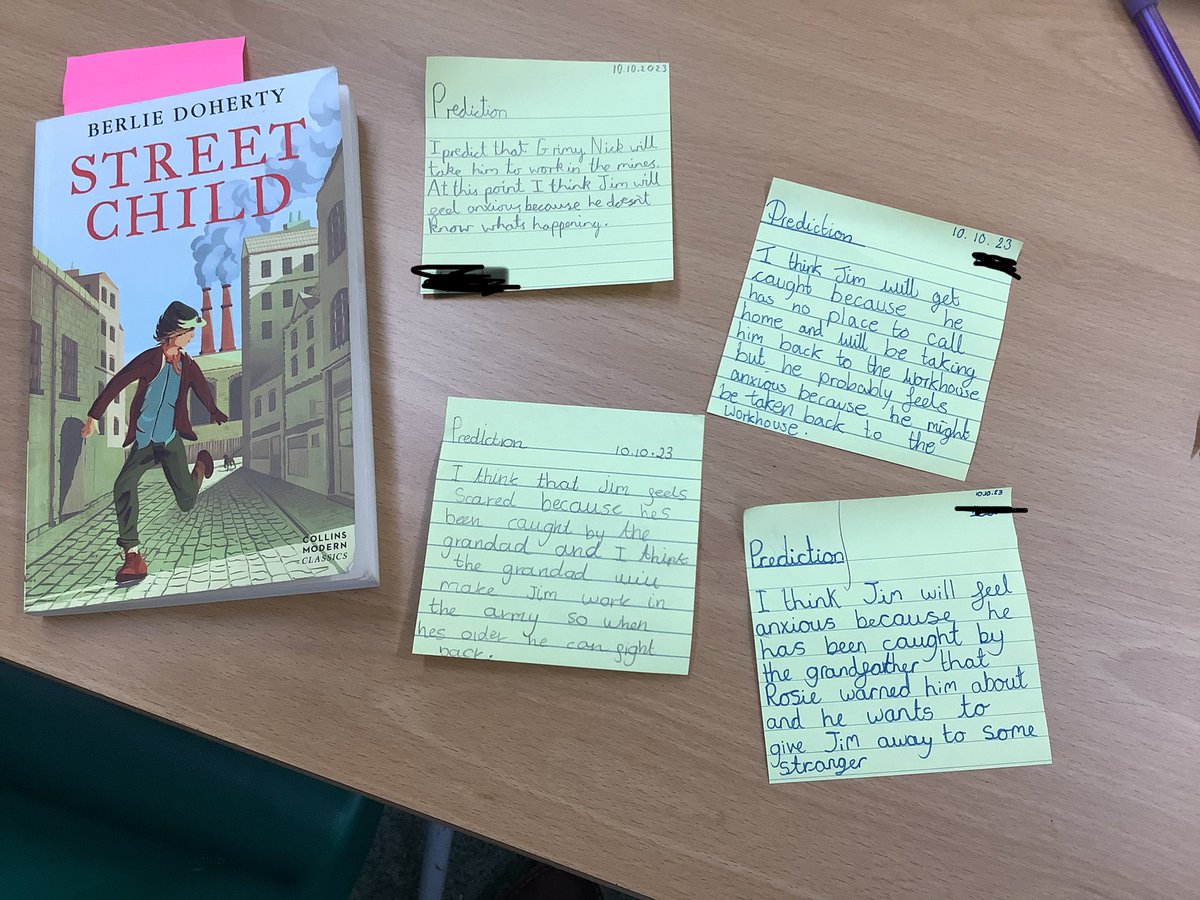 BERLIE DOHERTY
STREET
CHILD
COLLINS
MODERN
CLASSICS
10.10.2023
Prediction
I predict that Grimy Nick will
take him to work in the mines.
At this point I think Jim will
feel anxious because he doesn't
know whats happening.
Prediction
10.10.23
I think Jim will get
caught because he
has no place to call
home and will be taking
him back to the workhouse
but he probably feels
anxious because he might
be taken back to the
workhouse.
Prediction
10.10.23
I think that Jim feels
Scared because hes
been caught by the
grandad and I think
the grandad will
make Jim work in
the army so when
hes older he can fight
back.
10.10.23
Prediction
I think Jim will feel
anxious because he
has been caught by
the grandfather that
Rosie warned him about
and he wants to
give Jim away to some
stranger